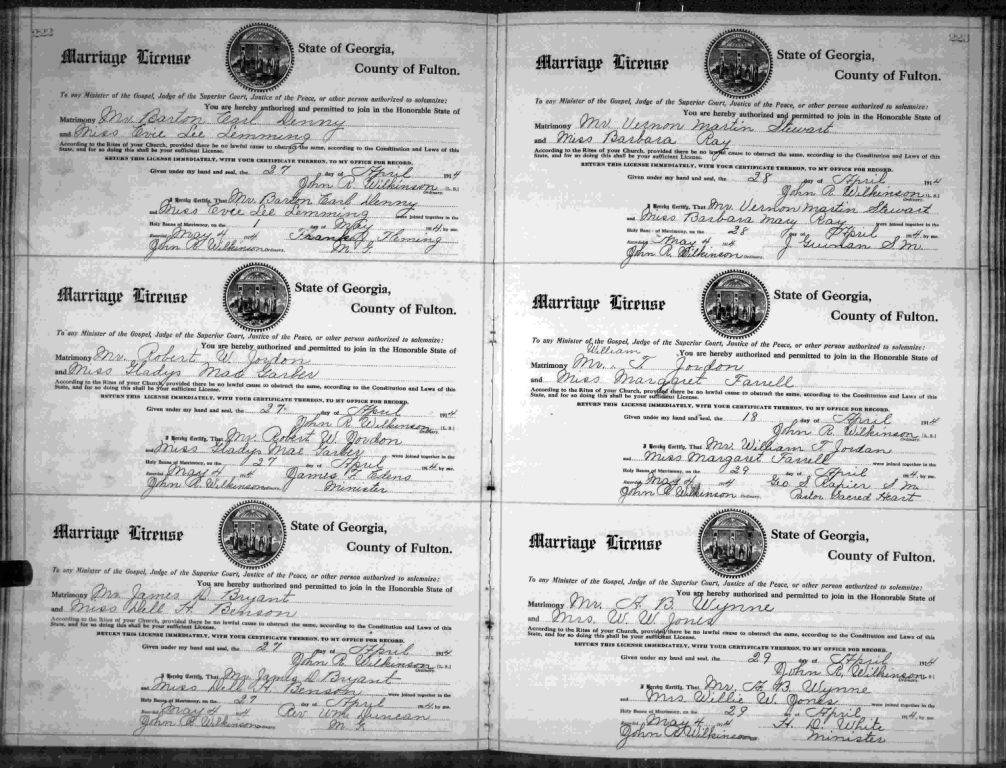 222
Marriage License
State of Georgia,
County of Fulton.
To any Minister of the Gospel, Judge of the Superior Court, Justice of the Peace, or other person authorized to solemnize:
You are hereby authorized and permitted to join in the Honorable State of
Matrimony Mr. Barton Earl Denny
and Miss Evie Lee Lemming
According to the Rites of your Church, provided there be no lawful cause to obstruct the same, according to the Constitution and Laws of this
State, and for so doing this shall be your sufficient License.
RETURN THIS LICENSE IMMEDIATELY, WITH YOUR CERTIFICATE THEREON, TO MY OFFICE FOR RECORD.
Given under my hand and seal, the 27 day of April 1914
John R. Wilkinson (L. S.)
Ordinary.
I Hereby Certify, That Mr. Barton Earl Denny
and Miss Evie Lee Lemming were joined together in the
Holy Banns of Matrimony, on the 1 day of May 1914, by me.
Recorded May 4 1914
John R. Wilkinson Ordinary. M. G.
Marriage License
State of Georgia,
County of Fulton.
To any Minister of the Gospel, Judge of the Superior Court, Justice of the Peace, or other person authorized to solemnize:
You are hereby authorized and permitted to join in the Honorable State of
Matrimony Mr. Robert W. Jordon
and Miss Gladys Mae
According to the Rites of your Church, provided there be no lawful cause to obstruct the same, according to the Constitution and Laws of this
State, and for so doing this shall be your sufficient License.
RETURN THIS LICENSE IMMEDIATELY, WITH YOUR CERTIFICATE THEREON, TO MY OFFICE FOR RECORD.
Given under my hand and seal, the 27 day of April 1914
John R. Wilkinson (L. S.)
Ordinary.
I Hereby Certify, That Mr. Robert W. Jordon
and Miss Gladys Mae were joined together in the
Holy Banns of Matrimony, on the 27 day of April 1914, by me.
Recorded May 4 1914 James F. Edens
John R. Wilkinson Ordinary. Minister
Marriage License
State of Georgia,
County of Fulton.
To any Minister of the Gospel, Judge of the Superior Court, Justice of the Peace, or other person authorized to solemnize:
You are hereby authorized and permitted to join in the Honorable State of
Matrimony Mr. James D. Bryant
and Miss Dell H. Benson
According to the Rites of your Church, provided there be no lawful cause to obstruct the same, according to the Constitution and Laws of this
State, and for so doing this shall be your sufficient License.
RETURN THIS LICENSE IMMEDIATELY, WITH YOUR CERTIFICATE THEREON, TO MY OFFICE FOR RECORD.
Given under my hand and seal, the 27 day of April 1914
John R. Wilkinson (L. S.)
Ordinary.
I Hereby Certify, That Mr. James D Bryant
and Miss Dell H. Benson were joined together in the
Holy Banns of Matrimony, on the 27 day of April 1914, by me.
Recorded May 4 1914 Rev. Wm. Duncan
John R. Wilkinson Ordinary. M. G.
223
Marriage License
State of Georgia,
County of Fulton.
To any Minister of the Gospel, Judge of the Superior Court, Justice of the Peace, or other person authorized to solemnize:
You are hereby authorized and permitted to join in the Honorable State of
Matrimony Mr. Vernon Martin Stewart
and Miss Barbara Ray
According to the Rites of your Church, provided there be no lawful cause to obstruct the same, according to the Constitution and Laws of this
State, and for so doing this shall be your sufficient License.
RETURN THIS LICENSE IMMEDIATELY, WITH YOUR CERTIFICATE THEREON, TO MY OFFICE FOR RECORD.
Given under my hand and seal, the 28 day of April 1914
John R. Wilkinson (L. S.)
Ordinary.
I Hereby Certify, That Mr. Vernon Martin Stewart
and Miss Barbara Mary Ray were joined together in the
Holy Banns of Matrimony, on the 28 day of April 1914, by me.
Recorded May 4 1914 J Guinan S. M.
John R. Wilkinson Ordinary.
Marriage License
State of Georgia,
County of Fulton.
To any Minister of the Gospel, Judge of the Superior Court, Justice of the Peace, or other person authorized to solemnize:
You are hereby authorized and permitted to join in the Honorable State of
William
Matrimony Mr. " F Jordon
and Miss Margaret Farrell
According to the Rites of your Church, provided there be no lawful cause to obstruct the same, according to the Constitution and Laws of this
State, and for so doing this shall be your sufficient License.
RETURN THIS LICENSE IMMEDIATELY, WITH YOUR CERTIFICATE THEREON, TO MY OFFICE FOR RECORD.
Given under my hand and seal, the 18 day of April 1914
John R. Wilkinson (L. S.)
Ordinary.
I Hereby Certify, That Mr. William F Jordan
and Miss Margaret Farrell were joined together in the
Holy Banns of Matrimony, on the 29 day of April 1914, by me.
Recorded May 4 1914 Geo S. Rapier S. M.
John R. Wilkinson Ordinary. Pastor Sacred Heart
Marriage License
State of Georgia,
County of Fulton.
To any Minister of the Gospel, Judge of the Superior Court, Justice of the Peace, or other person authorized to solemnize:
You are hereby authorized and permitted to join in the Honorable State of
Matrimony Mr. A. B. Wynne
and Mrs. W. W. Jones
According to the Rites of your Church, provided there be no lawful cause to obstruct the same, according to the Constitution and Laws of this
State, and for so doing this shall be your sufficient License.
RETURN THIS LICENSE IMMEDIATELY, WITH YOUR CERTIFICATE THEREON, TO MY OFFICE FOR RECORD.
Given under my hand and seal, the 29 day of April 1914
John R. Wilkinson (L. S.)
Ordinary.
I Hereby Certify, That Mr. A. B. Wynne
and Mrs Willie W. Jones were joined together in the
Holy Banns of Matrimony, on the 29 day of April 1914, by me.
Recorded May 4 1914 H. D. White
John R Wilkinson Ordinary. Minister